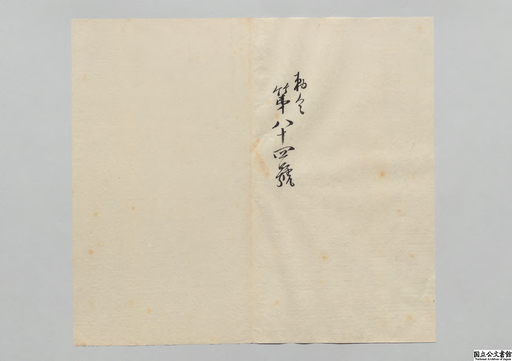 勅令
第八十四號
国立公文書館
National Archives of Japan